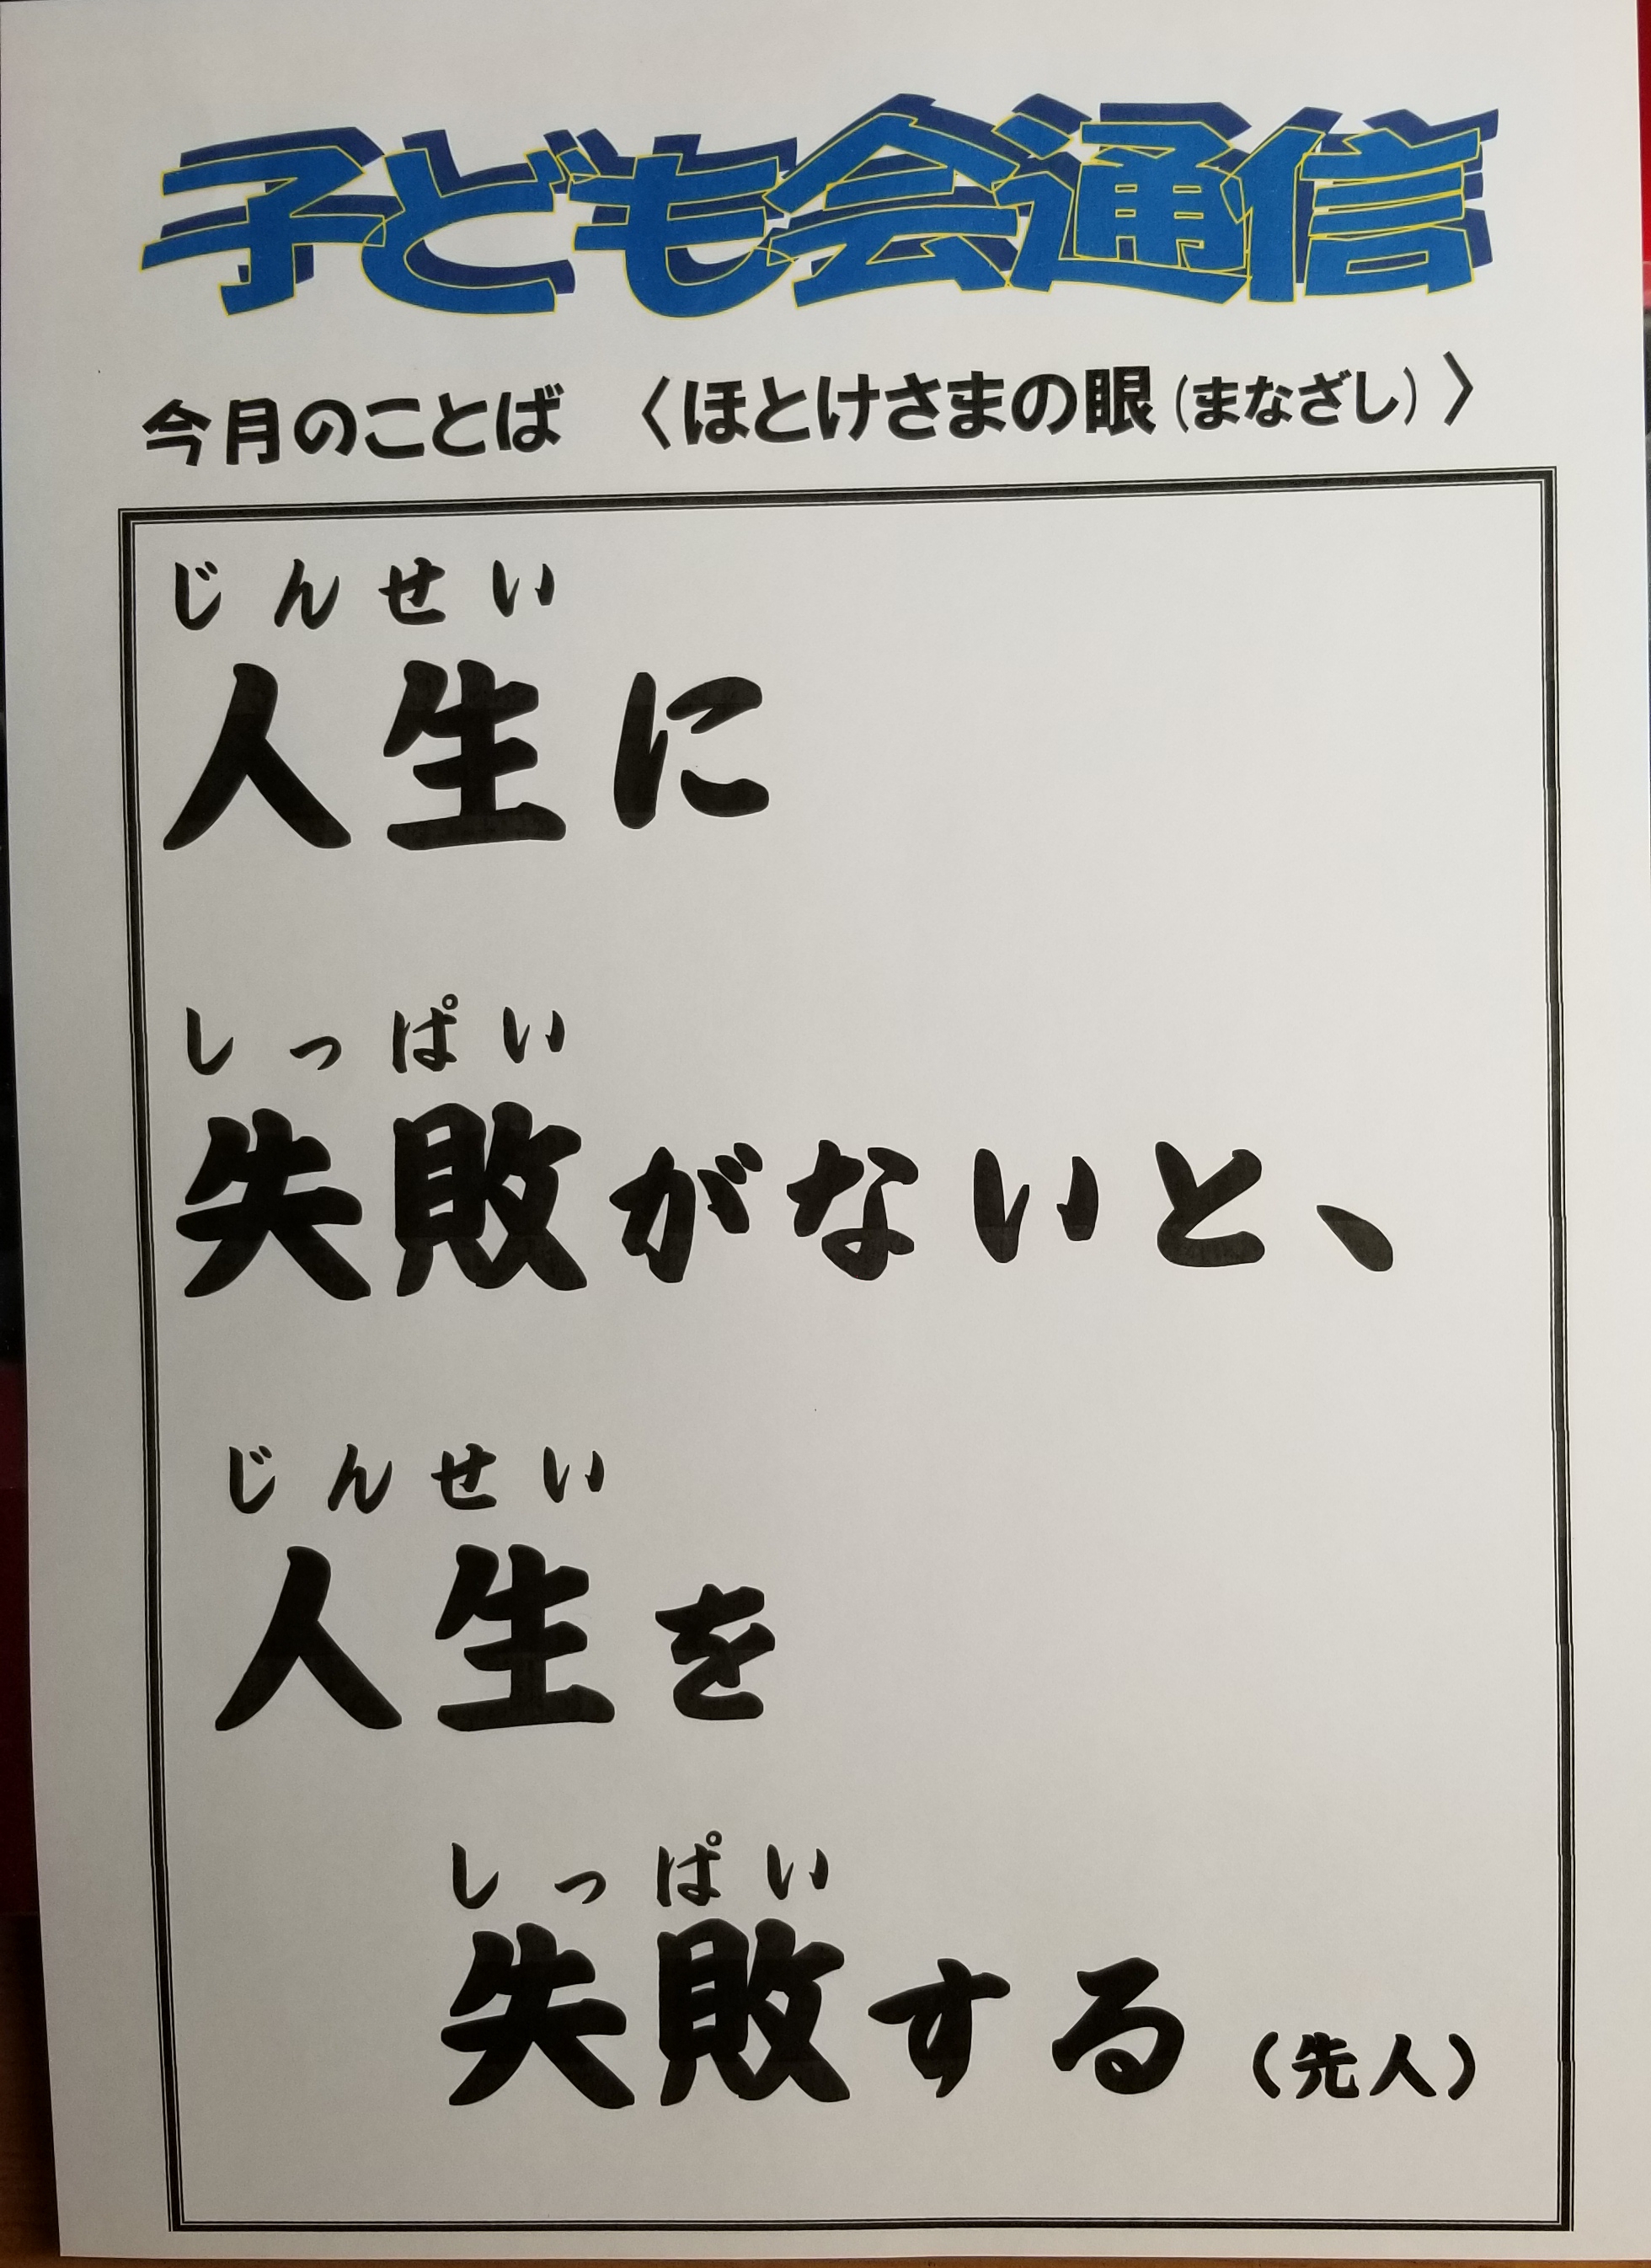 子ども会通信
今月のことば 〈ほとけさまの眼(まなざし)〉
じんせい
人生に
しっぱい
失敗がないと、
じんせい
人生を
しっぱい
失敗する(先人)